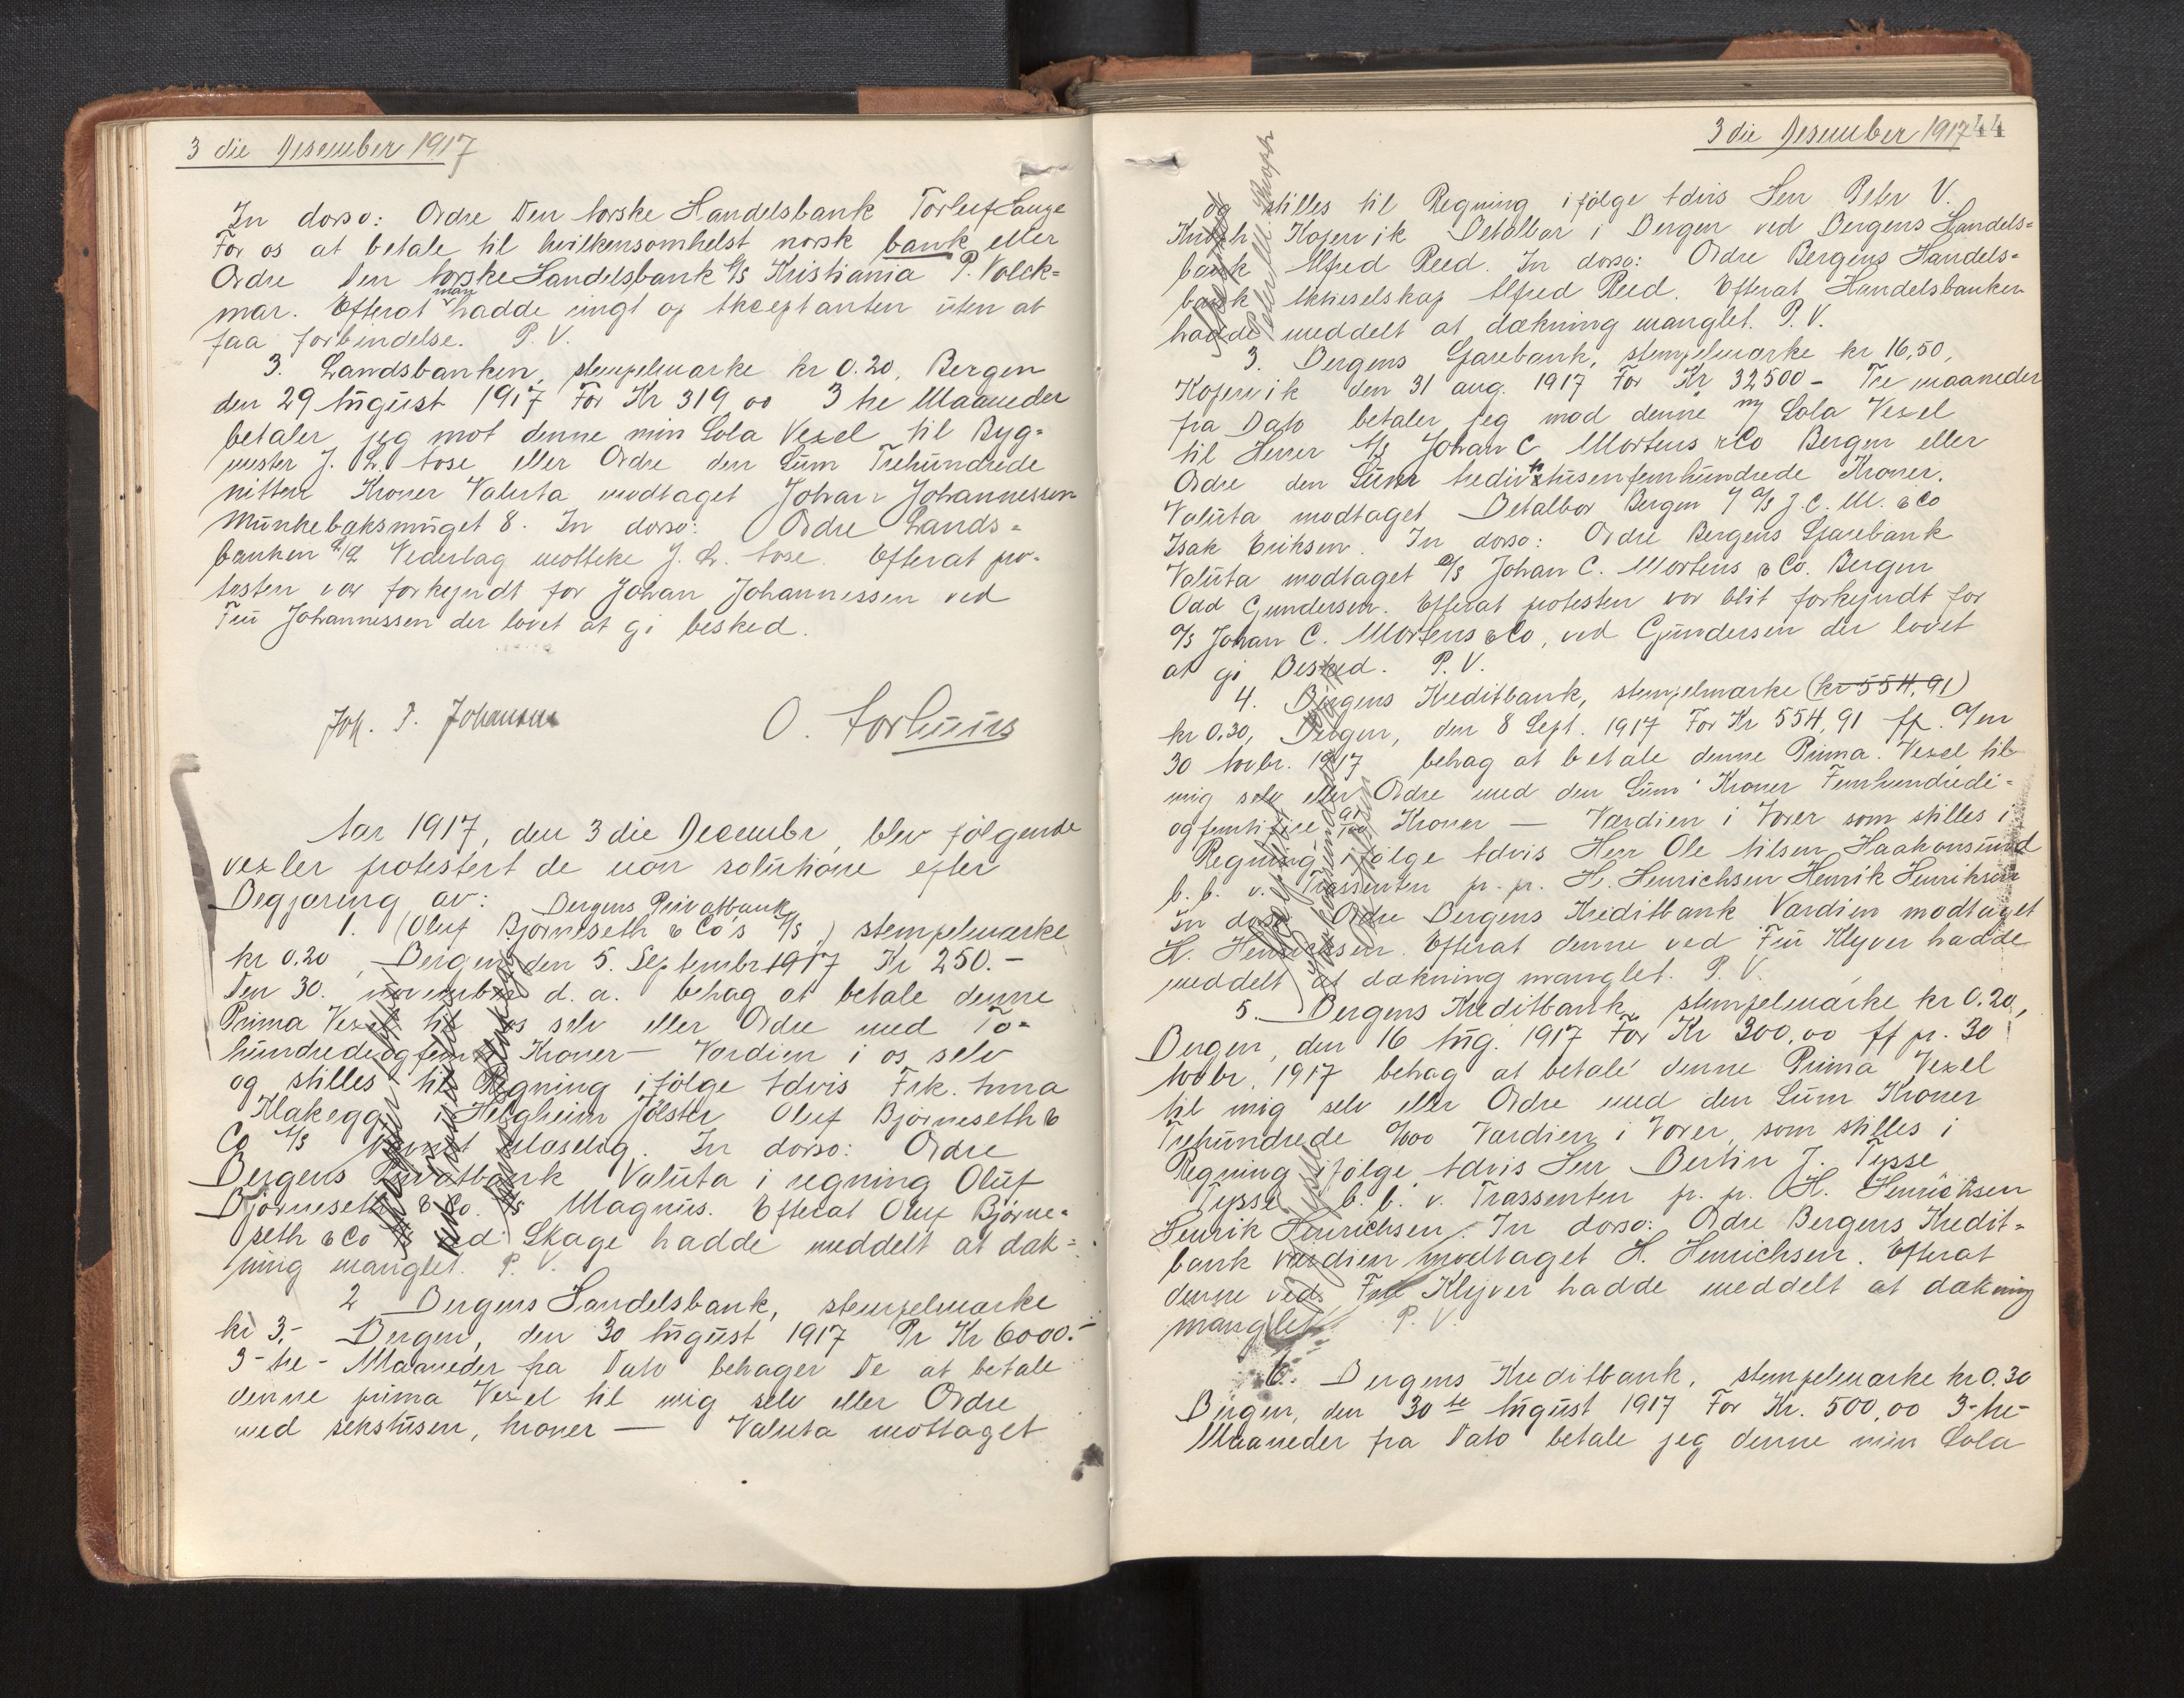 3 die Desember 1917
In dorso: Ordre Den Norske Handelsbank Torleif Lange
For os at betale til hvilkensomhelst norsk bank eller
Ordre Den Norske Handelsbank A/S Kristiania P. Volck=
mar. Efterat man hadde ringt op Akceptanten uten at
faa forbindelse. P. V.
3. Landsbanken, stempelmarke kr 0.20, Bergen
den 29 August 1917 For Kr 319 00 3 tre Maaneder
betaler jeg mot denne min Sola Vexel til Byg=
mester J. L. Aase eller Ordre den Sum Trehundrede
nitten Kroner Valuta modtaget Johan Johannessen
Munkebæksmuget 8. In dorso: Ordre Lands=
banken A/S Vederlag mottke J. L. Aase. Efterat pro-
testen var forkyndt for Johan Johannessen ved
Fru Johannessen der lovet at gi besked.
Joh. P. Johansen O. Aarhuus
Aar 1917, den 3 die Decembr, blev følgende
vexler protestert de non solutione efter
Begjæring av: Bergens Privatbank
1. (Oluf Bjørneseth & Co's A/S,) stempelmærke
kr 0.20, Bergen den 5. Septembr 1917 Kr 250.-
Den 30. november d. a. behag at betale denne
Prima Vexel til os selv eller Ordre med To=
hundredeogfemti Kroner — Værdien i os selv
og stilles til Regning ifølge Advis Frk. Anna
Klakegg i Helgheim Jølster Oluf Bjørneseth &
Co A/S In dorso: Ordre
Bergens Privatbank Valuta i regning Oluf
Bjørneseth & Co. A/S Magnus. Efterat Oluf Bjørne=
seth & Co A/S ved Skage hadde meddelt at dæk=
ning manglet. P. V.
2 Bergens Handelsbank, stempelmærke
kr 3,- Bergen, den 30 August 1917 Pr Kr 6000.-
3-tre- Maaneder fra Dato behager De at betale
denne prima Vexel til mig selv eller Ordre
med sekstusen, kroner — Valuta mottaget
3 die Desember 1917 44
og stilles til Regning ifølge Advis Herr Peter V.
Knoph Kopervik Betalbar i Bergen ved Bergens Handels=
bank Alfred Reed. In dorso: Ordre Bergens Handels=
bank Aktieselskap Alfred Reed. Efterat Handelsbanken
hadde meddelt at dækning manglet. P. V.
3. Bergens Sparebank, stempelmærke kr 16,50,
Kopervik den 31 aug. 1917 For Kr 32500- Tre maaneder
fra Dato betaler jeg mod denne my Sola Vexel
til Herrer A/S Johan C Mortens & Co Bergen eller
Ordre den Sum trediv totusenfemhundrede Kroner.
Valuta modtaget Betalbar Bergen A/S J. C. M. & Co
Isak Eriksen. In dorso: Ordre Bergens Sparebank
Valuta modtaget A/S Johan C. Mortens & Co. Bergen
Odd Gundersen. Efterat protesten var blit forkyndt for
A/S Johan C. Mortens & Co, ved Gundersen der lovet
at gi Besked. P. V.
4. Bergens Kreditbank, stempelmærke (kr 554,91)
kr 0.30, Bergen, den 8 Sept. 1917 For Kr 554,91 ff.
30 Novbr. 1917 behag at betale denne Prima Vexel til
mig selv eller Ordre med den Sum Kroner Femhundrede-
ogfemtifire 91/100 Kroner — Værdien i Varer som stilles i
Regning ifølge Advis Herr Ole Nilsen Haakonsund
b. b. v. Trassenten pr. pr. H. Henrichsen Henrik Henriksen
In dorso: Ordre Bergens Kreditbank Værdien modtaget
H. Henrichsen. Efterat denne ved Fru Klyver hadde
meddelt at dækning manglet. P. V.
5. Bergens Kreditbank, stempelmarke kr 0.20,
Bergen, den 16 Aug. 1917 For Kr 300,00 ff pr. 30
Novbr. 1917 behag at betale denne Prima Vexel
til mig selv eller Ordre med den Sum Kroner
Trehundrede 0/00 Værdien i Varer, som stilles i
Regning ifølge Advis Herr Bertin J. Tysse
Tysse b. b. v. Trassenten pr. pr. H. Henrichsen
Henrik Henrichsen. In dorso: Ordre Bergens Kredit=
bank værdien modtaget H. Henrichsen. Efterat
denne ved Fru Klyver hadde meddelt at dækning
manglet. P. V.
6. Bergens Kreditbank, stempelmærke kr 0.30
Bergen, den 30te August 1917 For Kr. 500,00 3-tre-
Maaneder fra Dato betale jeg denne min Sola